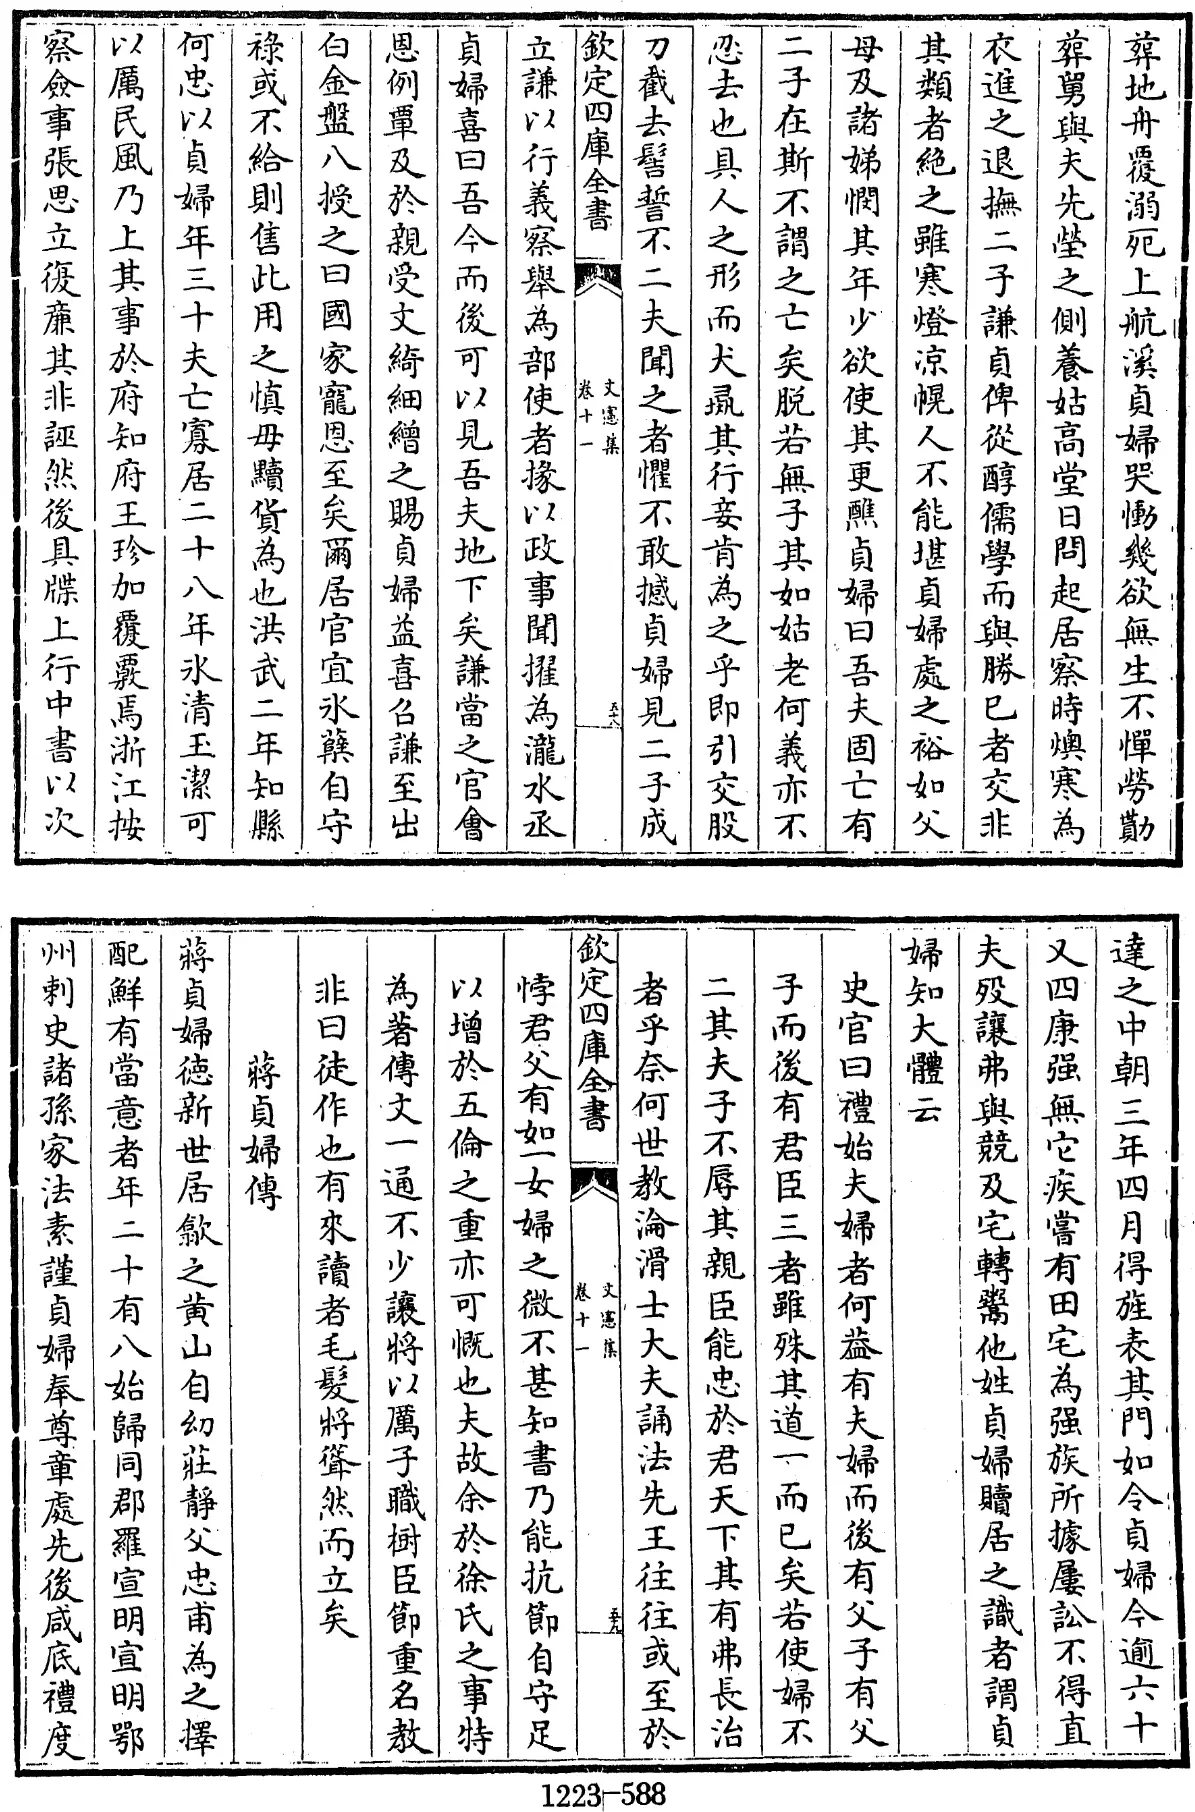 葬地舟覆溺死上航溪貞婦哭慟幾欲無生不憚勞勩
葬舅與夫先塋之側養姑高堂日問起居察時燠寒為
衣進之退撫二子謙貞俾從醇儒學而與勝已者交非
其類者絶之雖寒燈凉幌人不能堪貞婦處之裕如父
母及諸娣憫其年少欲使其更醮貞婦曰吾夫固亡有
二子在斯不謂之亡矣脱若無子其如姑老何義亦不
忍去也具人之形而犬彘其行妾肯為之乎即引交股
刀截去髻誓不二夫聞之者懼不敢撼貞婦見二子成
欽定四庫全書
文憲集
卷十一
五十八
立謙以行義察舉為部使者掾以政事聞擢為瀧水丞
貞婦喜曰吾今而後可以見吾夫地下矣謙當之官會
恩例覃及於親受文綺細繒之賜貞婦益喜召謙至出
白金盤八授之曰國家寵恩至矣爾居官宜氷蘖自守
祿或不給則售此用之慎毋黷貨為也洪武二年知縣
何忠以貞婦年三十夫亡寡居二十八年氷清玉潔可
以厲民風乃上其事於府知府王珍加覆覈焉浙江按
察僉事張思立復亷其非誣然後具牒上行中書以次
達之中朝三年四月得旌表其門如令貞婦今逾六十
又四康强無它疾嘗有田宅為强族所據屢訟不得直
夫殁讓弗與競及宅轉鬻他姓貞婦贖居之識者謂貞
婦知大體云
史官曰禮始夫婦者何益有夫婦而後有父子有父
子而後有君臣三者雖殊其道一而已矣若使婦不
二其夫子不辱其親臣能忠於君天下其有弗長治
者乎奈何世教淪滑士大夫誦法先王往往或至於
欽定四庫全書
文憲集
卷十一
五十九
悖君父有如一女婦之微不甚知書乃能抗節自守足
以增於五倫之重亦可慨也夫故余於徐氏之事特
為著傳文一通不少讓將以厲子職樹臣節重名教
非曰徒作也有來讀者毛髮將聳然而立矣
蔣貞婦傳
蔣貞婦德新世居歙之黄山自幼莊靜父忠甫為之擇
配鮮有當意者年二十有八始歸同郡羅宣明宣明鄂
州刺史諸孫家法素謹貞婦奉尊章處先後咸底禮度
1223-588